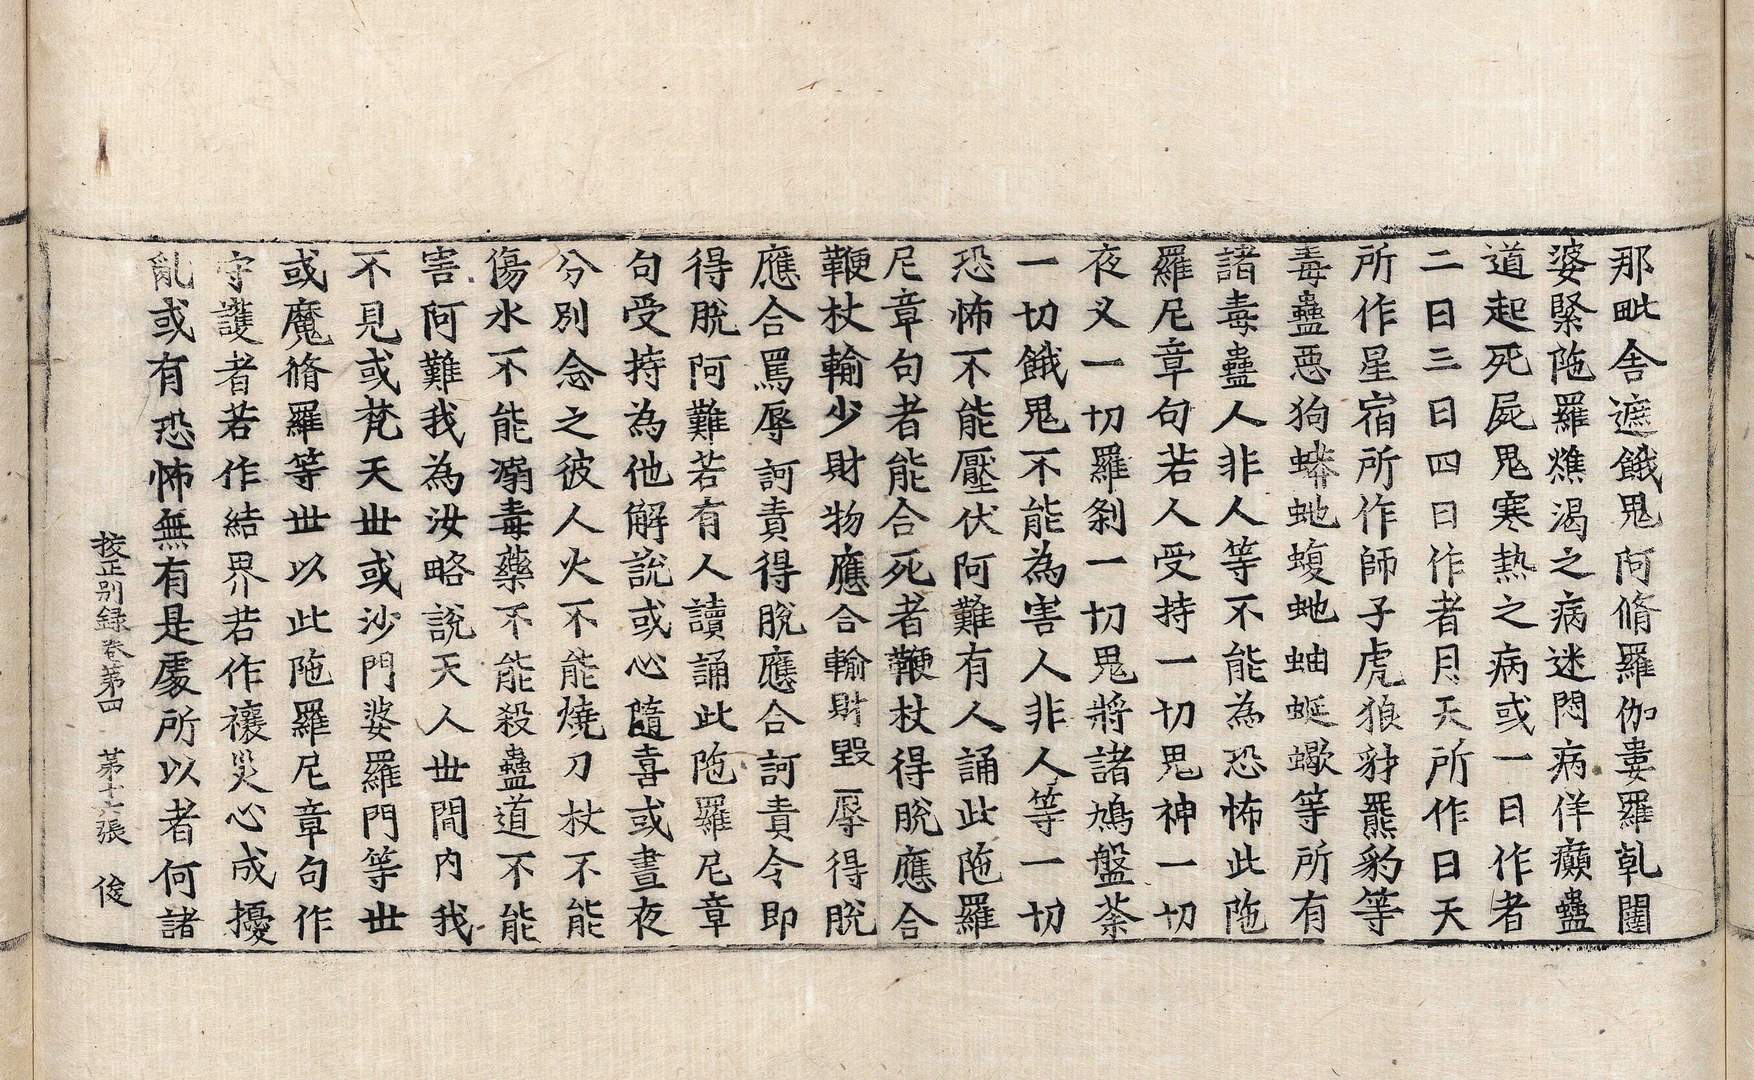 那毗舎遮餓鬼阿脩羅伽婁羅乹闥
婆緊陁羅燋渴之病迷悶病佯癲蠱
道起死屍鬼寒熱之病或一日作者
二日三日四日作者月天所作日天
所作星宿所作師子虎狼豺羆豹等
毒蠱惡狗蟒虵蝮虵蚰蜒蠍等所有
諸毒蠱人非人等不能為恐怖此陁
羅尼章句若人受持一切鬼神一切
夜叉一切羅剎一切鬼將諸鳩盤荼
一切餓鬼不能為害人非人等一切
恐怖不能壓伏阿難有人誦此陁羅
尼章句者能合死者鞭杖得脫應合
鞭杖輸少財物應合輸財毀辱得脫
應合罵辱訶責得脫應合訶責令即
得脫阿難若有人讀誦此陁羅尼章
句受持為他解說或心隨喜或晝夜
分別念之彼人火不能燒刀杖不能
傷水不能溺毒藥不能殺蠱道不能
害阿難我為汝略說天人世間內我
不見或梵天世或沙門婆羅門等世
或魔脩羅等世以此陁羅尼章句作
守護者若作結界若作禳災心成擾
亂或有恐怖無有是處所以者何諸
挍正別録卷第四 第十六張 俊